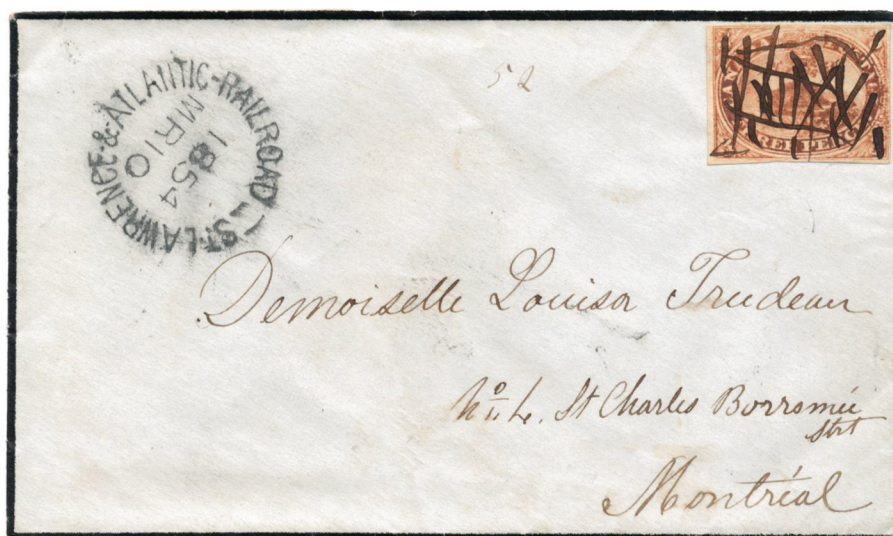 ST. LAWRENCE & ATLANTIC-RAILROAD
MR 10
1854
52
THREE PENCE
Demoiselle Louisa Trudeau
No 4. St Charles Borromée
Strt
Montréal